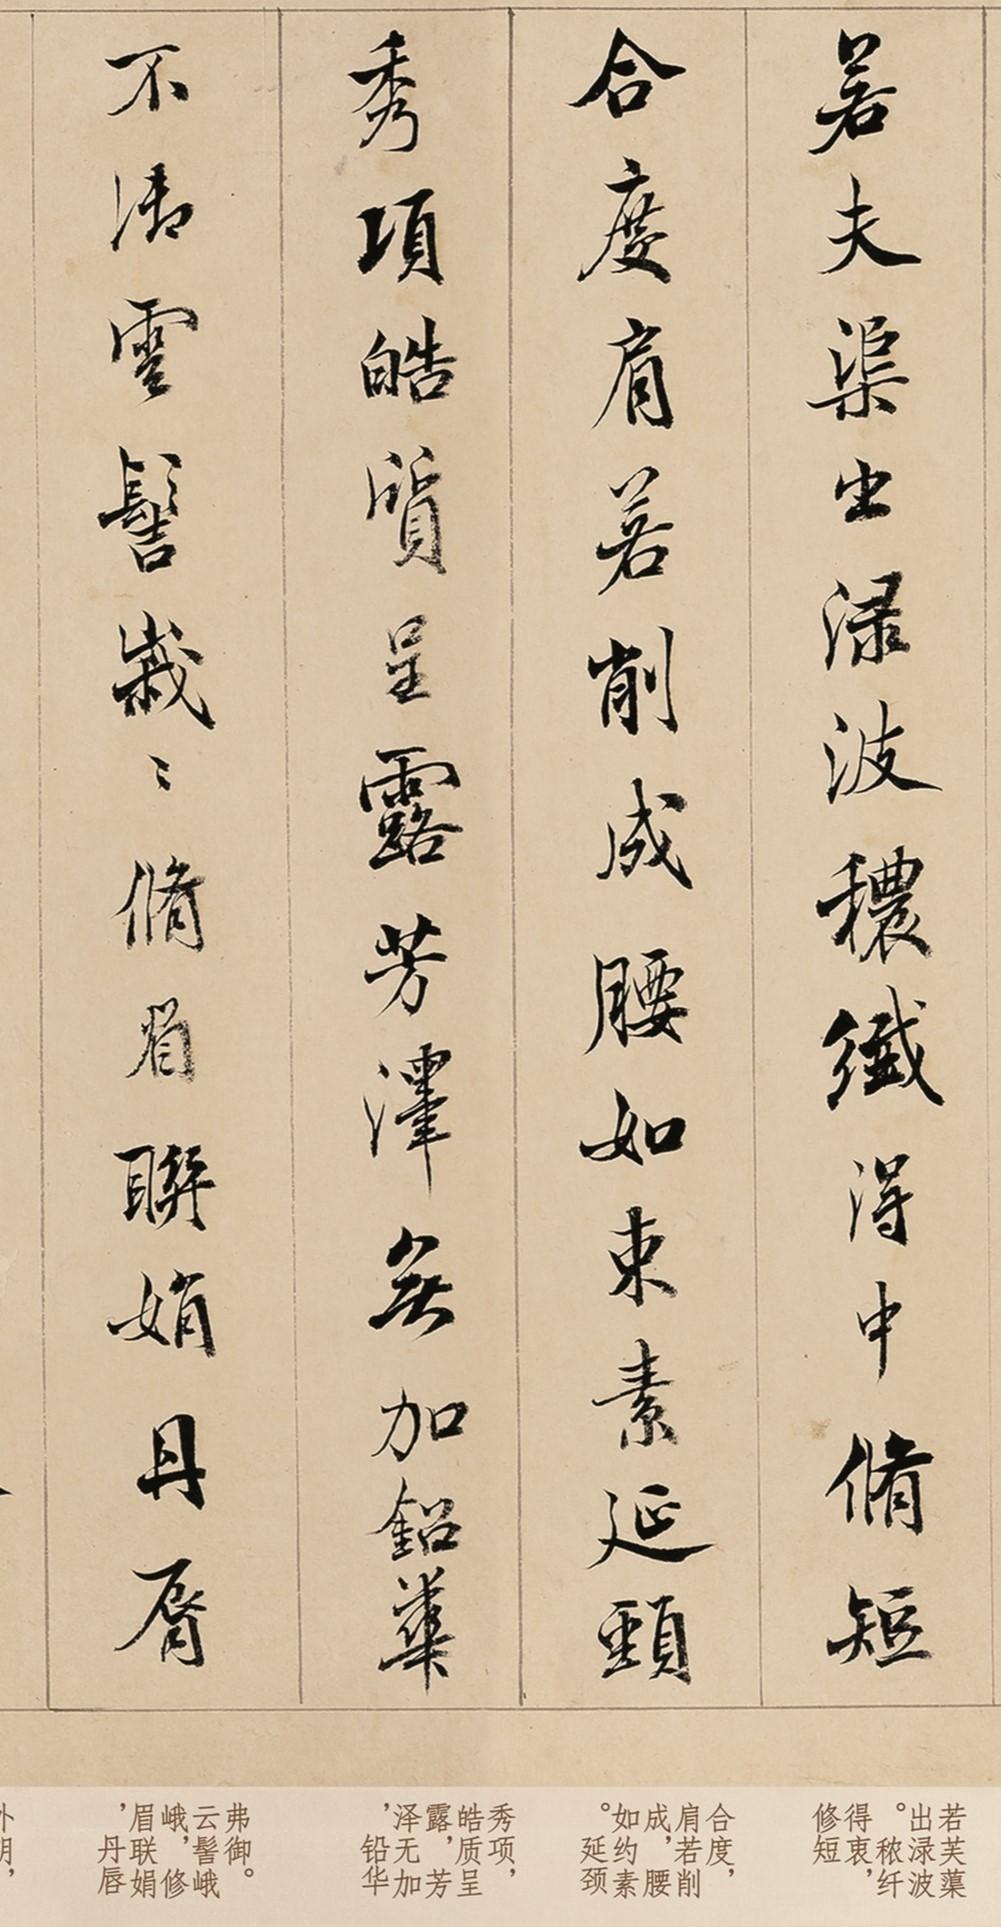 若夫渠出渌波穠纖得中脩短
合度肩若削成腰如束素延頸
秀項皓質呈露芳澤無加鉛華
不御雲髻峩〻脩眉聯娟丹脣
若芙蕖
出渌波
。秾纤
得衷,
修短
合度,
肩若削
成,腰
如约素
。延颈
秀项,
皓质呈
露,芳
泽无加
,铅华
弗御。
云髻峨
峨,修
眉联娟
,丹唇
外朗,